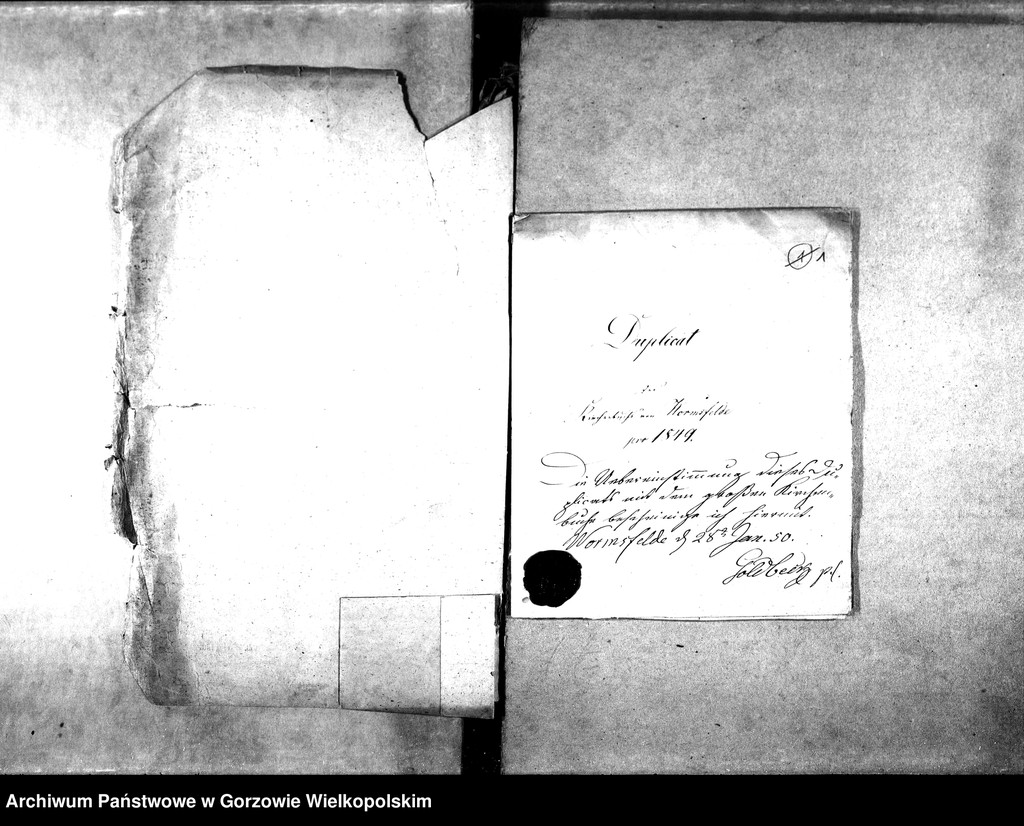 1 1
Duplicat
des
Kirchenbuchs von Wormsfelde
pro 1849.
Die Uebereinstimmung dieses Du-
plicats mit dem großen Kirchen-
buche bescheinige ich hiermit.
Wormsfelde d 28t Jan. 50.
Goldbeck
Archiwum Państwowe w Gorzowie Wielkopolskim